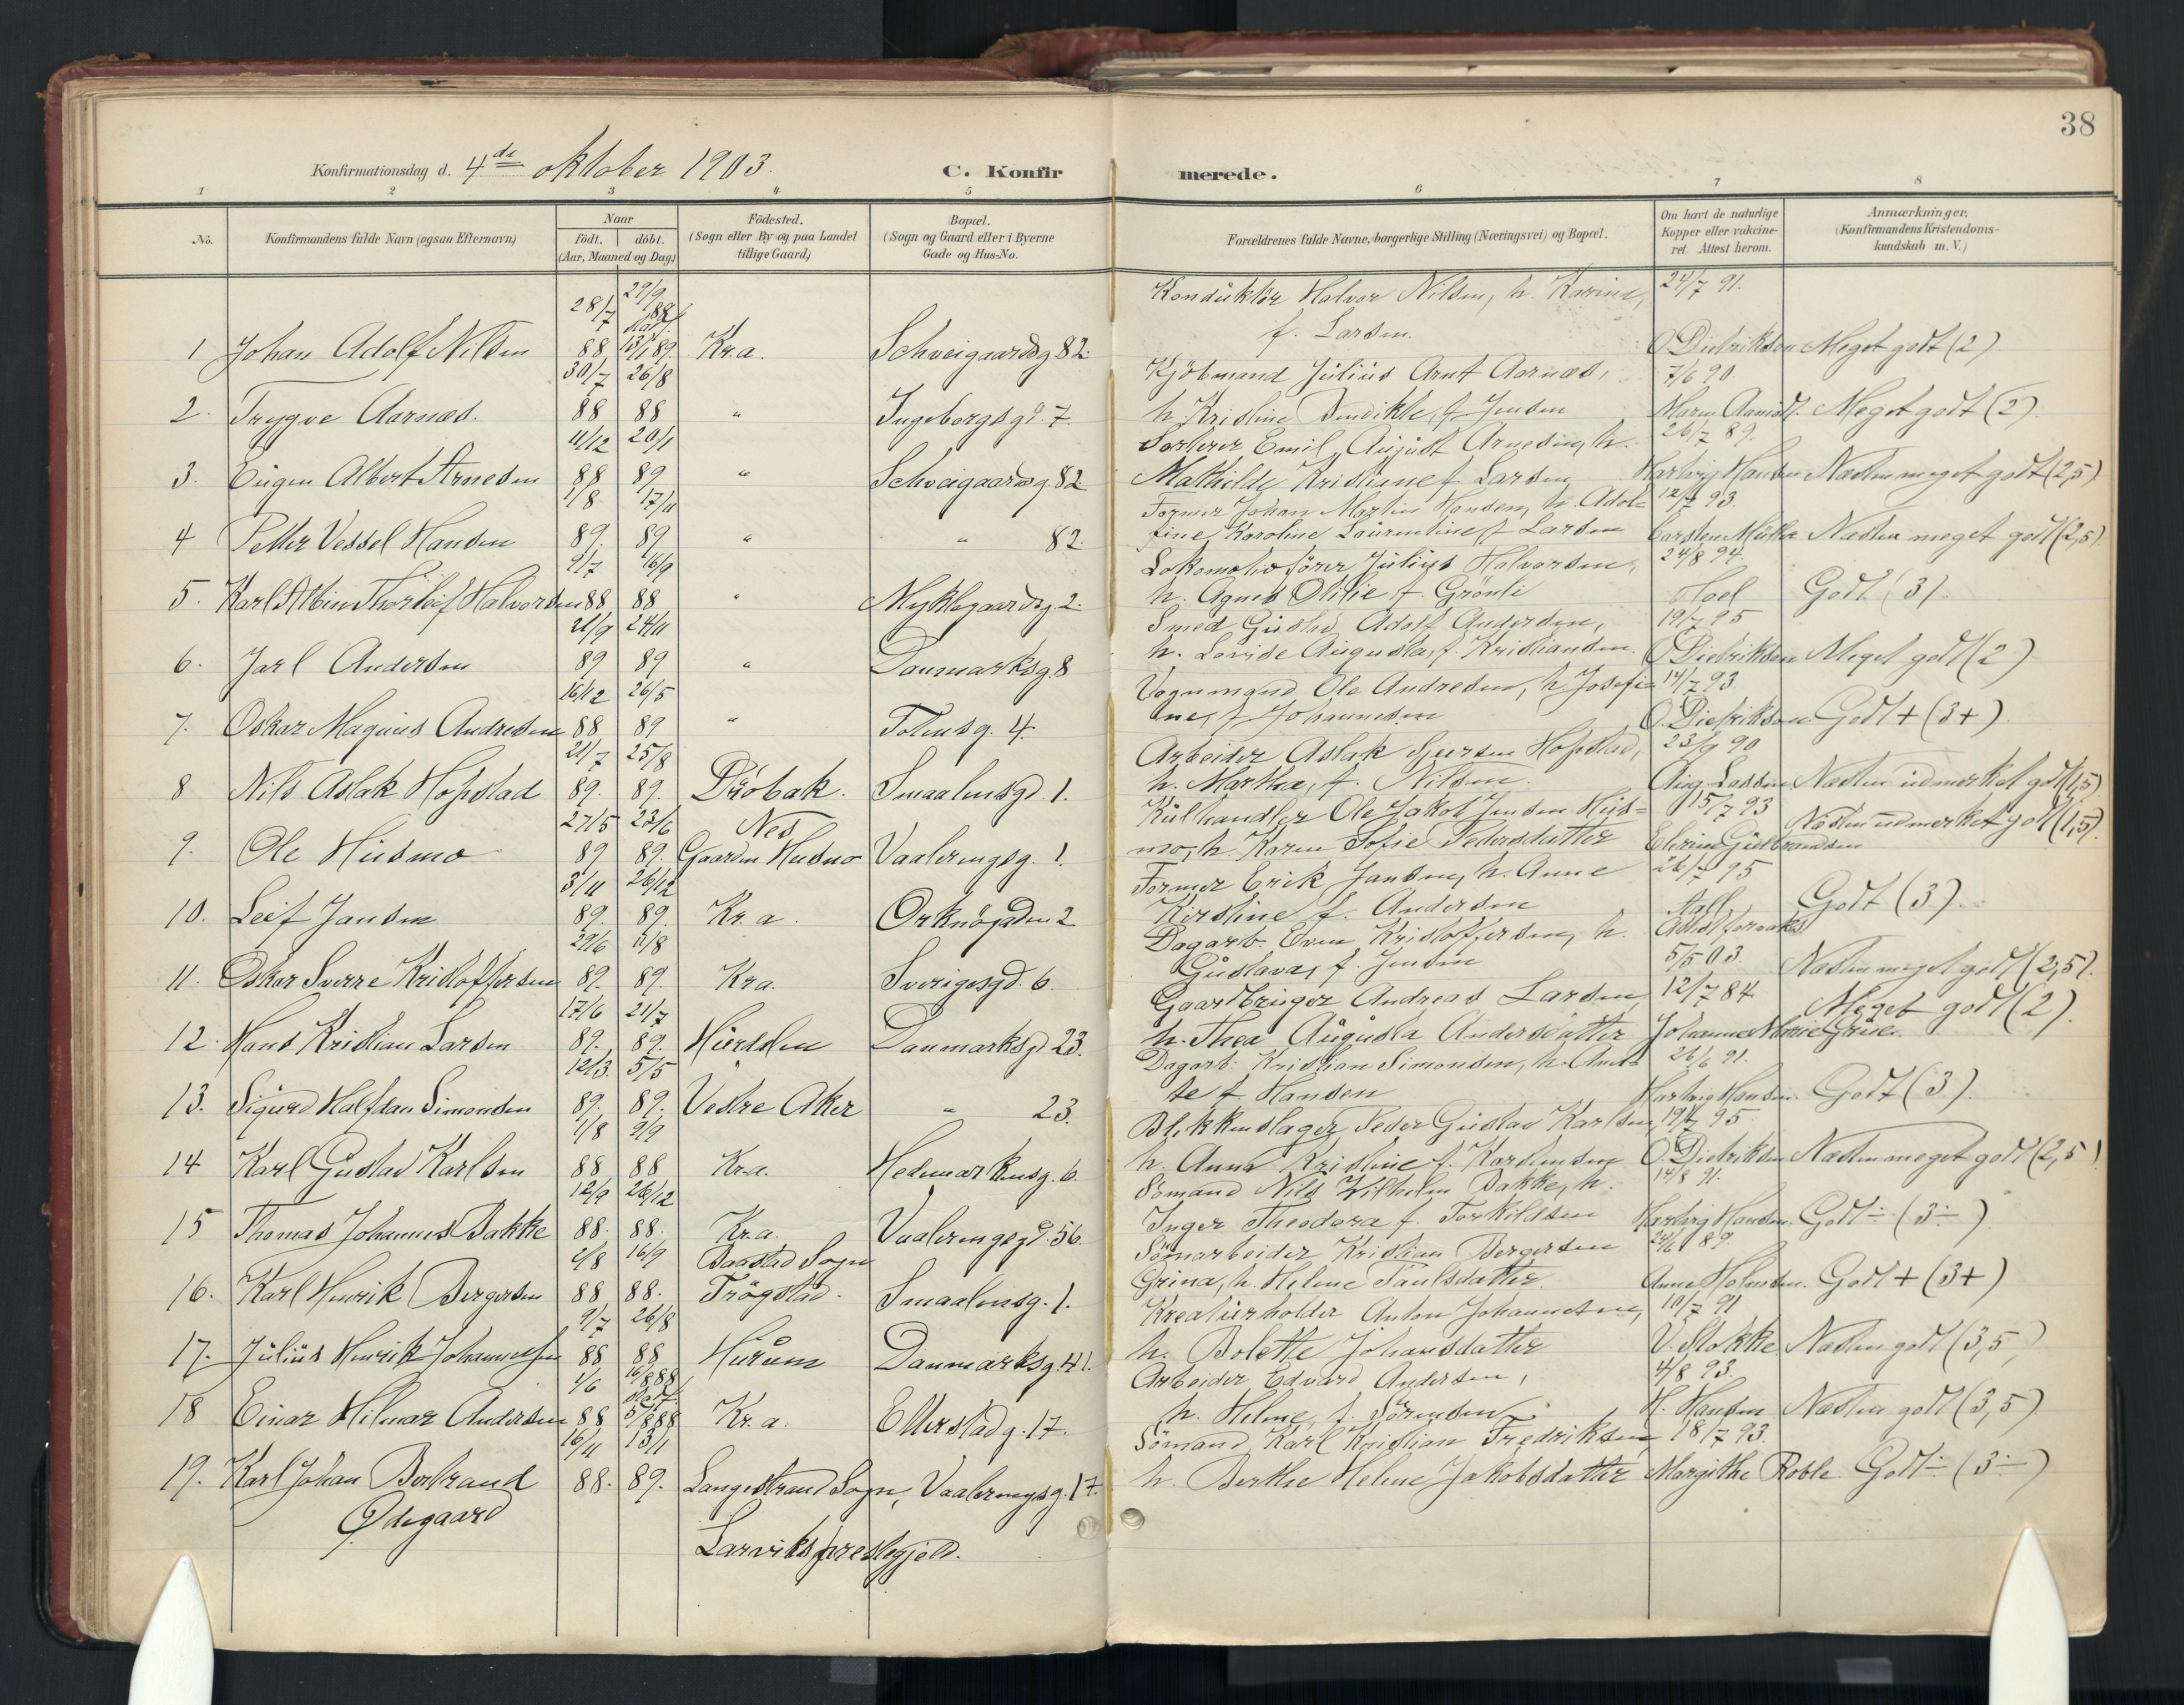 38
Konfirmationsdag d. 4de oktober 1903.
C. Konfirmerede.
1 2 3 4 5 6 7 8
No. Konfirmandens fulde Navn (ogsaa Efternavn) Naar födt. döbt. (Aar, Maaned og Dag) Födested. (Sogn eller By og paa Landet tillige Gaard) Bopæl. (Sogn og Gaard eller i Byerne Gade og Hus-No. Forældrenes fulde Navne, borgerlige Stilling (Næringsvei) og Bopæl. Om havt de naturlige Kopper eller vakcineret. Attest herom. Anmærkninger. (Konfirmandens Kristendomskundskab m. V.)
28/7 29/9 88 Konduktör Halvor Nilsen, h. Karine, 24/7 91.
stadf. f. Larsen.
1 Johan Adolf Nilsen 88 13/1 89. Kr.a. Schveigaardsg 82. O. Diedriksen Meget godt (2)
30/7 26/8 Kjöbmand Julius Arnt Aarnæs, 7/6 90
2. Trygve Aarnæs. 88 88 " Ingeborgsgd. 7. h. Kristine Bendikte, f. Jensen Meget godt (2).
11/12 20/1 Sorterer Emil August Arnesen, h. 26/7 89.
3. Eugen Albert Arnesen 88 89 " Schveigaardsg. 82. Mathilde Kristiane f. Larsen Hartvig Hansen Næsten meget godt (2,5)
1/8 17/11 Former Johan Martin Hansen, h. Adol= 12/7 93.
4 Petter Vessel Hansen 89. 89 " " 82. fine Karoline Laurentine f. Larsen Carsten Müller Næsten meget godt (2,5).
9/7 16/9 Lokomotivförer Julius Halvorsen, 24/8 94.
5. Karl Albin Thorleif Halvorsen 88 88 " Nyklegaardsg. 2. h. Agnes Otilie f. Grönli Hoel Godt (3).
21/9 24/11 Smed Gustav Adolf Andersen, 19/7 95
6. Jarl Andersen 89 89 " Danmarksg. 8 h. Lovise Augusta, f. Kristiansen. O. Diedriksen Meget godt (2)
16/12 26/5 Vognmand Ole Andresen, h. Josefi= 14/7 93.
7. Oskar Magnus Andresen 88 89 " Totensg. 4. ne, f Johannesen O. Diedriksen Godt + (3+)
21/7 25/8 Arbeider Aslak Sjursen Hopstad, 23/9 90
8 Nils Aslak Hopstad 89. 89. Dröbak. Smaalensgd. 1. h. Marthe, f. Nilsen. Aug. Larsen Næsten udmerket godt (1,5)
27/5 23/6 Nes Kulhandler Ole Jakob Jensen Hus= 15/7 93
9. Ole Husmo 89 89. Gaarden Husmo Vaalerengsg. 1. mo, h. Karen Sofie Pedersdatter Elevine Gulbrandsen Næsten udmerket godt (1,5).
3/11 26/12 Former Erik Jansen, h. Anne 26/7 95
10. Leif Jansen 89. 89. Kr.a. Orknögaden 2 Kirstine f. Andersen Aall Godt (3).
29/6 11/8 Dagarb. Even Kristoffersen, h.
11. Oskar Sverre Kristoffersen 89. 89. Kr.a. Sverigesgd. 6. Gustava, f. Jensen 5/5 03 Næsten meget godt (2,5).
17/6 21/7 Gaardbruger Andreas Larsen, 12/7 84
12. Hans Kristian Larsen 89. 89. Hurdalen Danmarksgd 23. h. Thea Augusta Andersdatter Johanne Marie Grue. Meget godt (2).
12/3. 5/5 Dagarb. Kristian Simonsen, h. Anet= 26/6 91.
13. Sigurd Halfdan Simonsen 89. 89. Vestre Aker " 23. te f. Hansen Hartvig Hansen Godt (3).
1/8 2/9 Blikkenslager Peder Gustav Karlsen, 19/7 95
14 Karl Gustav Karlsen 88 88 Kr.a. Hedemarkensg. 6. h. Anna Kristine f. Karstensen O. Diedriksen Næsten meget godt (2,5)
12/9 26/12 Sömand Nils Wilhelm Bakke, h. 14/8 91.
15 Thomas Johannes Bakke 88. 88. Kr.a. Vaalerengsgd. 56. Inger Theodora f. Torkildsen Hartvig Hansen. Godt ÷ (3÷)
2/8 16/9 Baastad Sogn Sömarbeider Kristian Bergersen 24/6 89.
16. Karl Henrik Bergersen 88 88. Trögstad. Smaalensg. 1. Grina, h. Helene Paulsdatter. Anne Holmsen. Godt + (3+)
9/7 26/8 Kreaturholder Anton Johannesen, 10/7 91
17. Julius Henrik Johannesen 88 88 Hurum Danmarksg. 41. h. Bolette Johansdatter V. Stokke Næsten godt (3,5)
1/6 16/8 88 Arbeider Edvard Andersen, 4/8 93.
stadf.
18 Einar Hilmar Andersen 88 5/8 88 Kr.a. Etterstadg. 17. h. Helene, f. Sörensen H. Hansen Næsten godt (3,5)
16/11 13/1 Sömand Karl Kristian Fredriksen 18/7 93.
19. Karl Johan Bertrand 88. 89. Langestrand Sogn, Vaalerengsg. 17. h. Berthe Helene Jakobsdatter Margithe Roble Godt ÷ (3÷)
Ødegaard
Larviks prestegjeld.